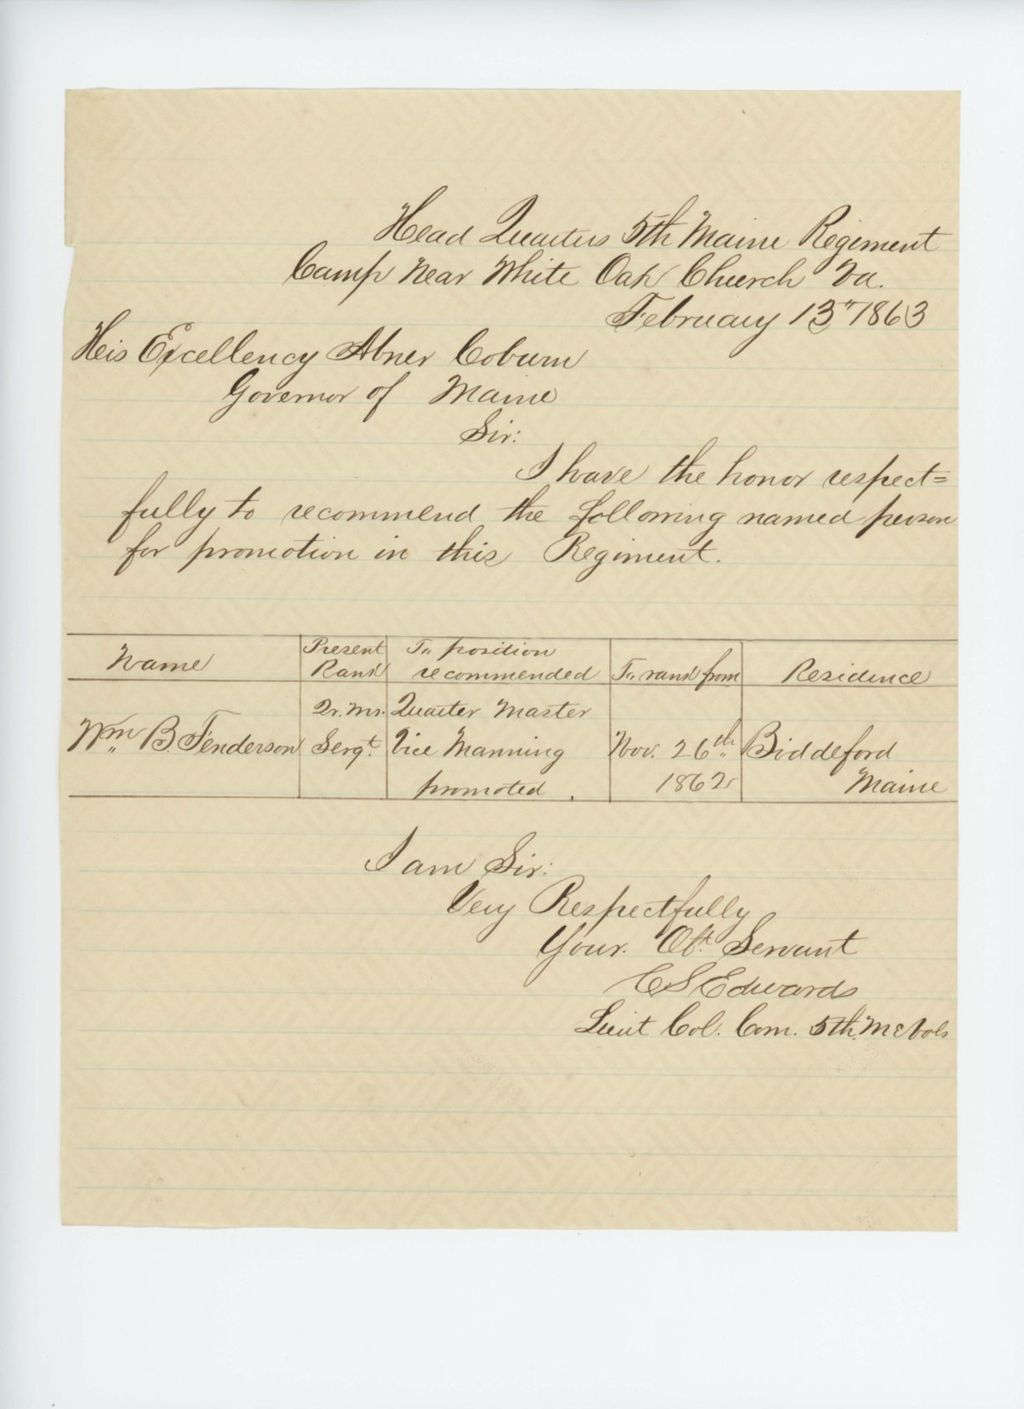 Head Quarters 5th Maine Regiment
Camp Near White Oak Church Va.
February 13" 1863
His Excellency Abner Coburn
Governor of Maine
Sir:
I have the honor respect=
fully to recommend the following named person
for promotion in this Regiment.
Name | Present Rank | To position recommended | To rank from | Residence
Wm B Fenderson | Qr. Mr. Sergt. | Quarter Master Vice Manning promoted. | Nov. 26th 1862 | Biddeford Maine
I am Sir:
Very Respectfully
Your. Obt. Servant
C S Edwards
Lieut Col. Com. 5th Me Vols